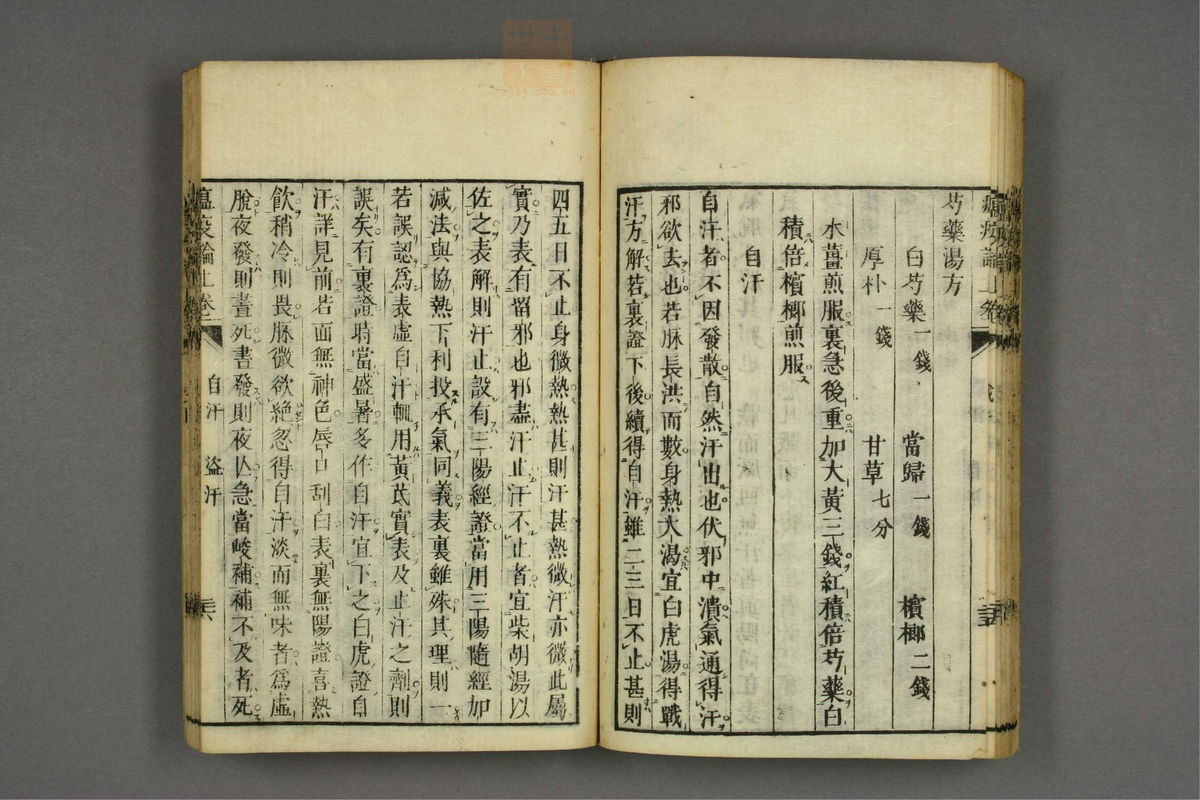 瘟疫論上卷
芍藥湯方
白芍藥一錢 當歸一錢 檳榔二錢
厚朴一錢 甘草七分
水薑煎服裏急後重加大黃三錢紅積倍芍藥白
積倍檳榔煎服
自汗
自汗者不因發散自然汗出也伏邪中潰氣通得汗
邪欲去也若脉長洪而數身熱大渴宜白虎湯得戰
汗方解若裏證下後續得自汗雖二三日不止甚則
四五日不止身微熱熱甚則汗甚熱微汗亦微此屬
實乃表有留邪也邪盡汗止汗不止者宜柴胡湯以
佐之表解則汗止設有三陽經證當用三陽隨經加
減法與協熱下利投承氣同義表裏雖殊其理則一
若誤認爲表虛自汗輒用黃芪實表及止汗之劑則
誤矣有裏證時當盛暑多作自汗宜下之白虎證自
汗詳見前若面無神色唇口刮白表裏無陽證喜熱
飲稍冷則畏脉微欲絶忽得自汗淡而無味者爲虛
脫夜發則晝死晝發則夜亾急當峻補補不及者死
瘟疫論上卷 自汗 盜汗